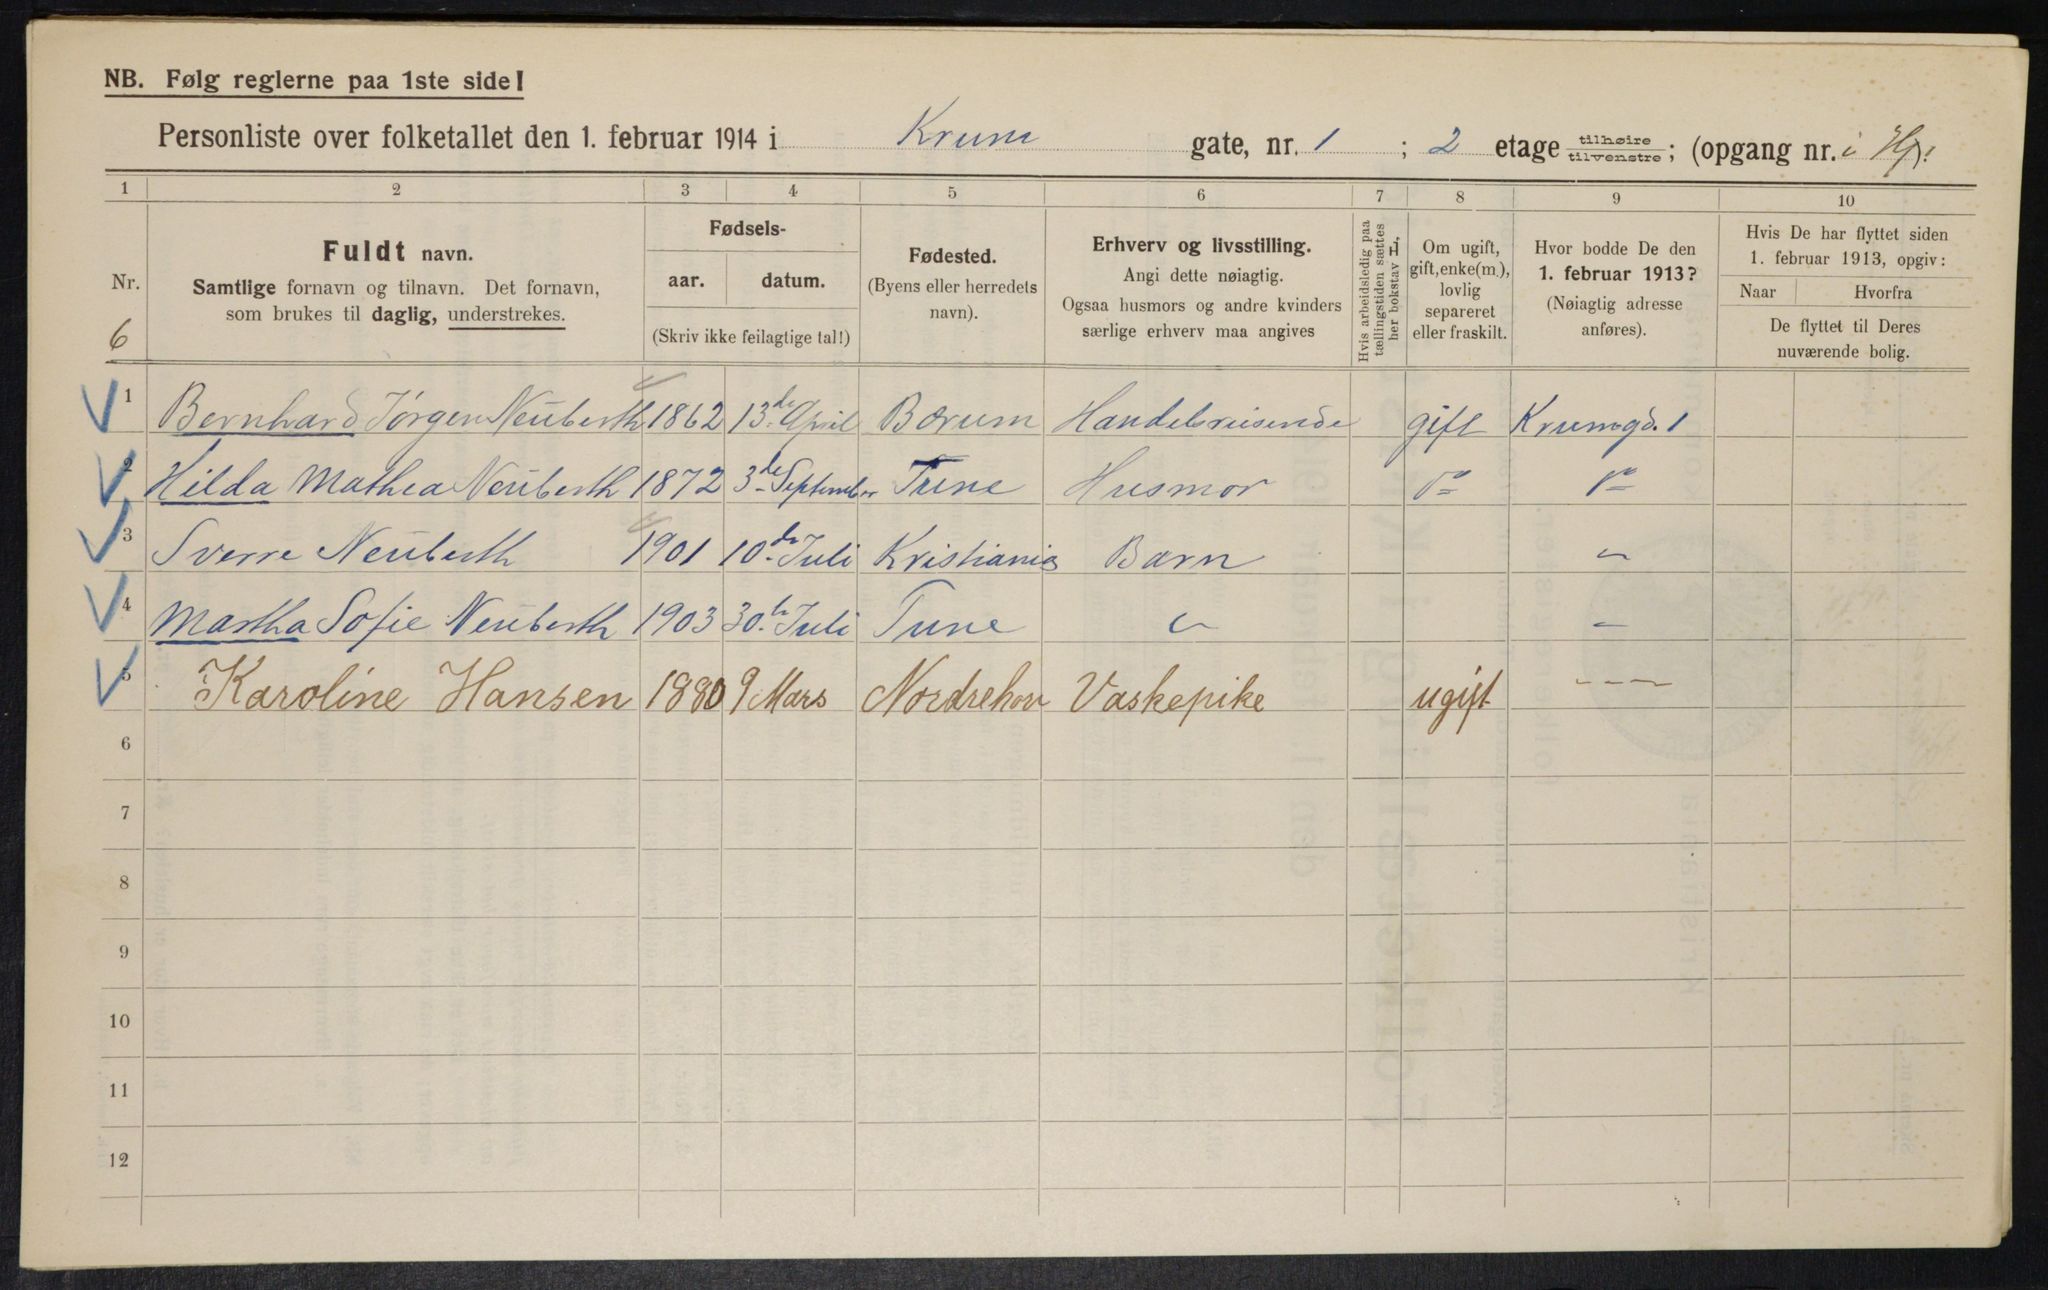 NB. Følg reglerne paa 1ste side!
Personliste over folketallet den 1. februar 1914 i Krum gate, nr. 1 ; 2 etage tilhøire tilvenstre; (opgang nr. i
1 2 3 4 5 6 7 8 9 10
Nr.
6
Fuldt navn.
Samtlige fornavn og tilnavn. Det fornavn,
som brukes til daglig, understrekes.
Fødsels-
aar. datum.
(Skriv ikke feilagtige tal!)
Fødested.
(Byens eller herredets
navn).
Erhverv og livsstilling.
Angi dette nøiagtig.
Ogsaa husmors og andre kvinders
særlige erhverv maa angives
Hvis arbeidsledig paa
tællingstiden sættes
her bokstav H,
Om ugift,
gift, enke(m.),
lovlig
separeret
eller fraskilt.
Hvor bodde De den
1. februar 1913?
(Nøiagtig adresse
anføres).
Hvis De har flyttet siden
1. februar 1913, opgiv:
Naar Hvorfra
De flyttet til Deres
nuværende bolig.
1 Bernhard Jørgen Neuberth 1862 13de April Bærum Handelsreisende gift Krumgd. 1
2 Hilda Mathea Neuberth 1872 3de September Tune Husmor do do
3 Sverre Neuberth 1901 10de Juli Kristiania Barn "
4 Martha Sofie Neuberth 1903 30de Juli Tune " "
5 Karoline Hansen 1880 9 Mars Nordrehov Vaskepike ugift - - -
6
7
8
9
10
11
12